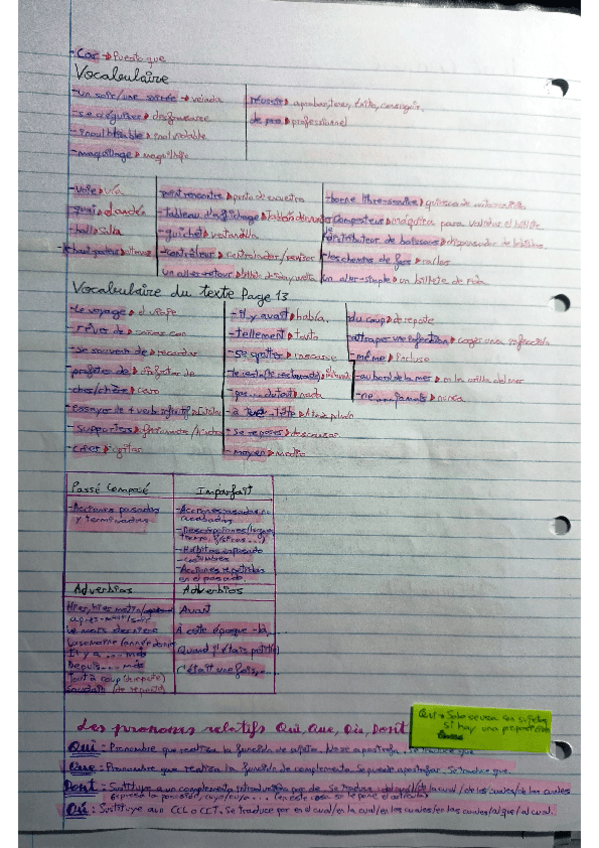 -Car → Puesto que
Vocabulaire
-un soir/une soirée → velada
-se déguiser → disfrazarse
-inoubliable → inolvidable
-maquillage → maquillaje
réussir → aprobar, tener éxito, conseguir.
de pro → professionnel
-voie → vía
-quai → andén
-hall → sala
point rencontre → punto de encuentro
-tableau d'affichage → tablón de
-guichet → ventanilla
-contrôleur → controlador/revisor
un aller-retour → billete de ida y vuelta
-borne libre-service → quiosco de
Composteur → máquina para validar el billete
distributeur de boissons → dispensador de bebidas
-les chemins de fer → raíles
un aller-simple → un billete de ida
Vocabulaire du texte Page 13
-le voyage → el viaje
-rêver de → soñar con
-se souvenir de → recordar
-profiter de → disfrutar de
-cher/chère → caro
-Essayer de + verbe infinitif →
-supporter →
-crier → gritar
-il y avait → había.
-tellement → tanto
-se gratter → rascarse
→ nada
-à tue-tête →
-se reposer → descansar
-moyen → medio
du coup → de repente
attraper une infection → coger una infección
-même → incluso
au bord de la mer → en la orilla del mar
-ne...jamais → nunca
Passé Composé
Imparfait
-Acciones pasadas
y terminadas
-Acciones pasadas no
acabadas
-Descripciones
-Hábitos en pasado
-costumbres
-Acciones repetidas
en el pasado.
Adverbios
Adverbios
Hier, hier matin/
après-midi/soir
Le mois dernier
La semaine/année dernière
Il y a ... mois
Depuis ... mois
Tout à coup (de repente)
Soudain (de repente)
Avant
À cette époque-là,...
Quand j'étais petit(e)
C'était une fois,...
Les pronoms relatifs Qui, Que, Où, Dont
Qui → Solo se usa en sujetos
si hay una preposición
Qui: Pronombre que realiza la función de sujeto. No se apostrofa. Se traduce que
Que: Pronombre que realiza la función de complemento. Se puede apostrofar. Se traduce que.
Dont: Sustituye a un complemento introducido por de. Se traduce: del que/de la cual/de los cuales/de las cuales
expresa la posesión, cuyo/cuya... (en este caso se le pone el artículo)
Où: Sustituye a un CCL o CCT. Se traduce por en el cual/en la cual/en los cuales/en las cuales/al que/al cual.